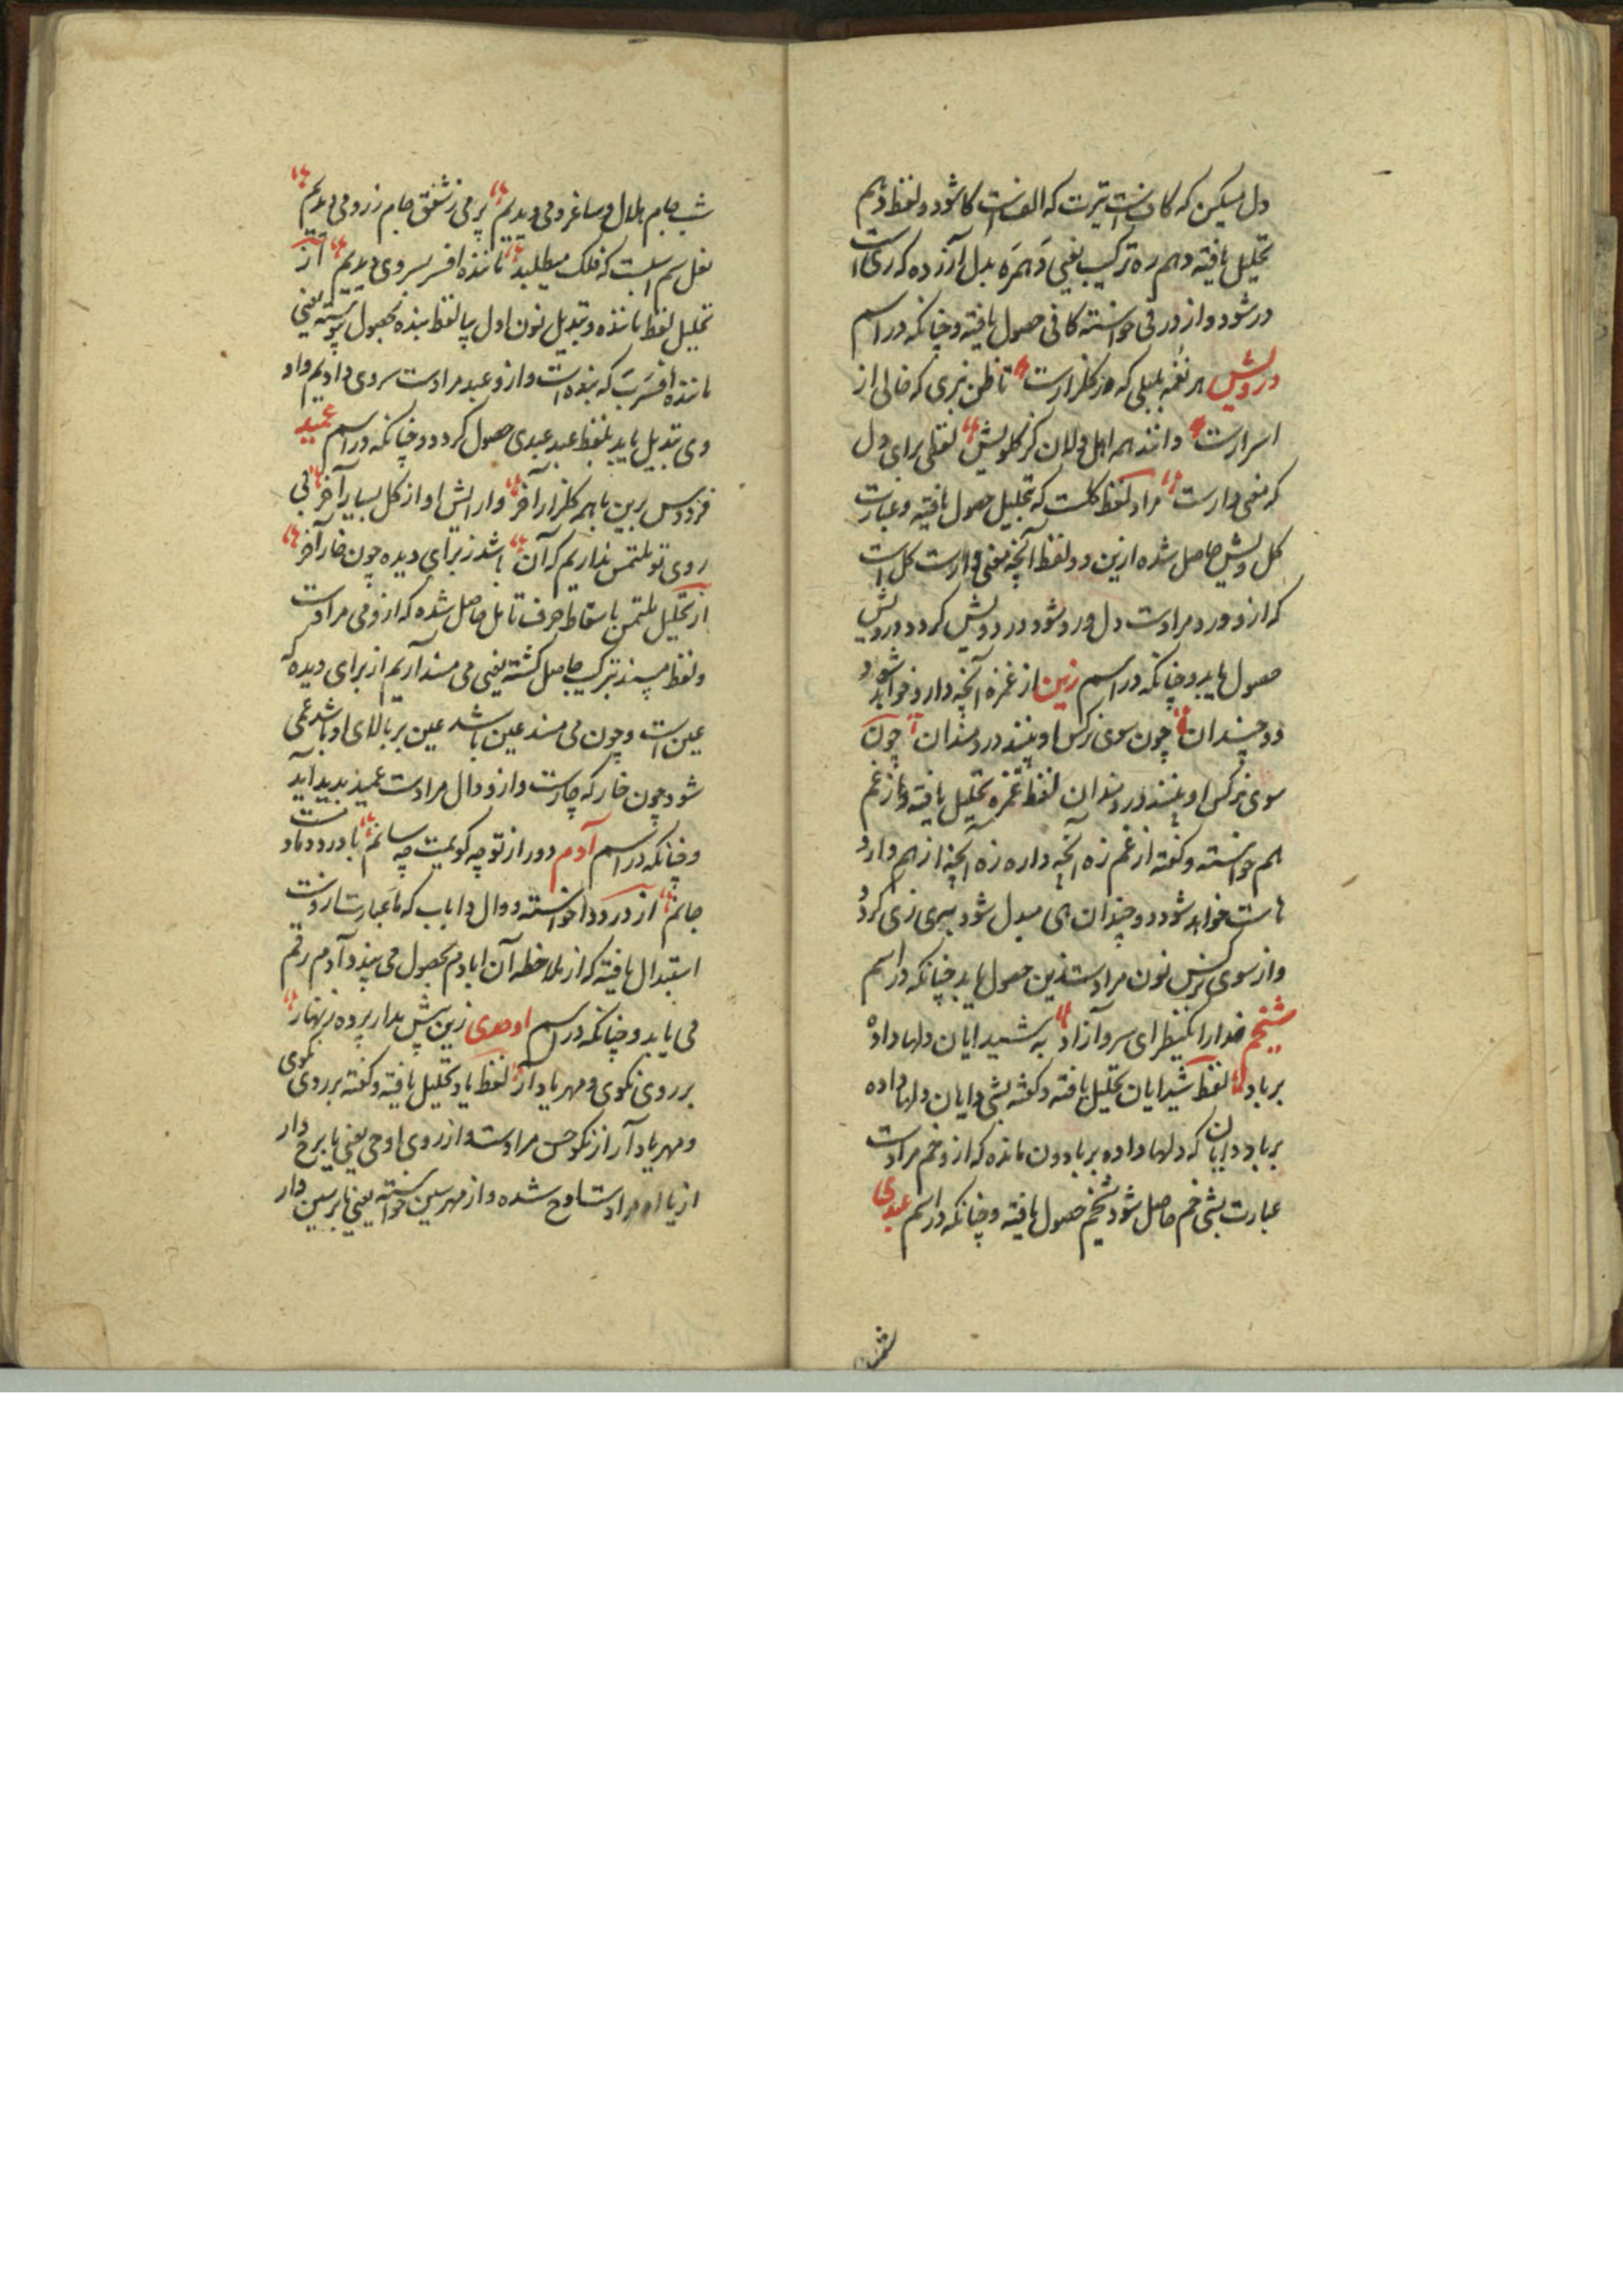 دل مسکین که کاف است تیرت که الف است کا شود و لفظ دهم
تحلیل یافته و هم ره ترکیب یعنی دهمره بدل آرزده که ری است
در شود و از در فی خواسته کافی حصول یافته و چنانکه در اسم
درویش هر نغمه بلبلی که در گلزارست تا ظن نبری که خالی از
اسرارست دانند همه اهل دلان کز گلویش لفظی برای دل
که معنی دارست مراد لفظ گلست که بتحلیل حصول یافته و عبارت
گل ویش حاصل شده ازین دو لفظ آنچه معنی دارست گل است
که ازو ورد مرادست دل ورد شود در دویش کرد درویش
حصول یابد و چنانکه در اسم زین از غمزه آنچه دارد خواهد شود
دو چندان چون سوی نرگس او بینند دردمندان چون
سوی نرگس او بینند دردمندان لفظ غمزه تحلیل یافته و باز غم
هم خواسته و گفته از غم زه آنچه داره زه آنچه از هم دارد
هاست خواهد شود دو چندان های مبدل شود بیی زی کردد
و از سوی نرگس نون مرادست زین حصول یابد چنانکه در اسم
شیخم خدارا یکنظر ای سرو آزاد به شیدایان دلها داده
بر باد لفظ شیدایان تحلیل یافته و گفته بشی دایان دلها داده
بر باد دایان که دلها داده بر باد دون مانده که ازو خم مرادست
عبارت بشی خم حاصل شود شیخم حصول یافته و چنانکه در اسم عبدی
شب جام هلال و ساغر و می دیدیم پر می ز شفق جام زر و می دیدیم
نعل سم اسبت که فلک میطلبد تا بنده افسر بسر وی دیدیم از
تحلیل لفظ تابنده و تبدیل نون اول بیا لفظ بنده بحصول پیوسته یعنی
تا بنده افسرت که بنده است و ازو عبد مرادست سر وی دادیم واو
وی تبدیل یابد بلفظ عبد عبدی حصول کردد و چنانکه در اسم عمید
فردوس برین با همه گلزار آخر وارایش او از گل بسیار آخر بی
روی تو ملتمس نداریم که آن باشد ز برای دیده چون خار آخر
از تحلیل ملتمس باسقاط حرف تا مل حاصل شده که ازو می مرادست
و لفظ مسند بترکیب حاصل گشته یعنی می مسند آریم از برای دیده که
عین است و چون می مسند عین باشد عین بر بالای او باشد عمی
شود چون خار که چارست و ازو دال مرادست عمید پدید آید
و چنانکه در اسم آدم دور از تو چه گویمت چه سانم با درد و دمادست
جانم از درد دا خواسته و دال دا باب که ما عبارت ازوست
استبدال یافته که از ملاحظه آن ابادم بحصول می پیوندد آدم رقم
می یابد و چنانکه در اسم اوحدی زین پیش بدار پرده زنهار
بر روی نکوی و مهر یاد آر لفظ یاد تحلیل یافته و گفته بر روی نکوی
و مهر یاد آر از نکو حسن مرادست و از روی او حی یعنی یا بر ح دار
از یا او مرادست اوح شده و از مهر سین خواسته یعنی یا بر سین دار